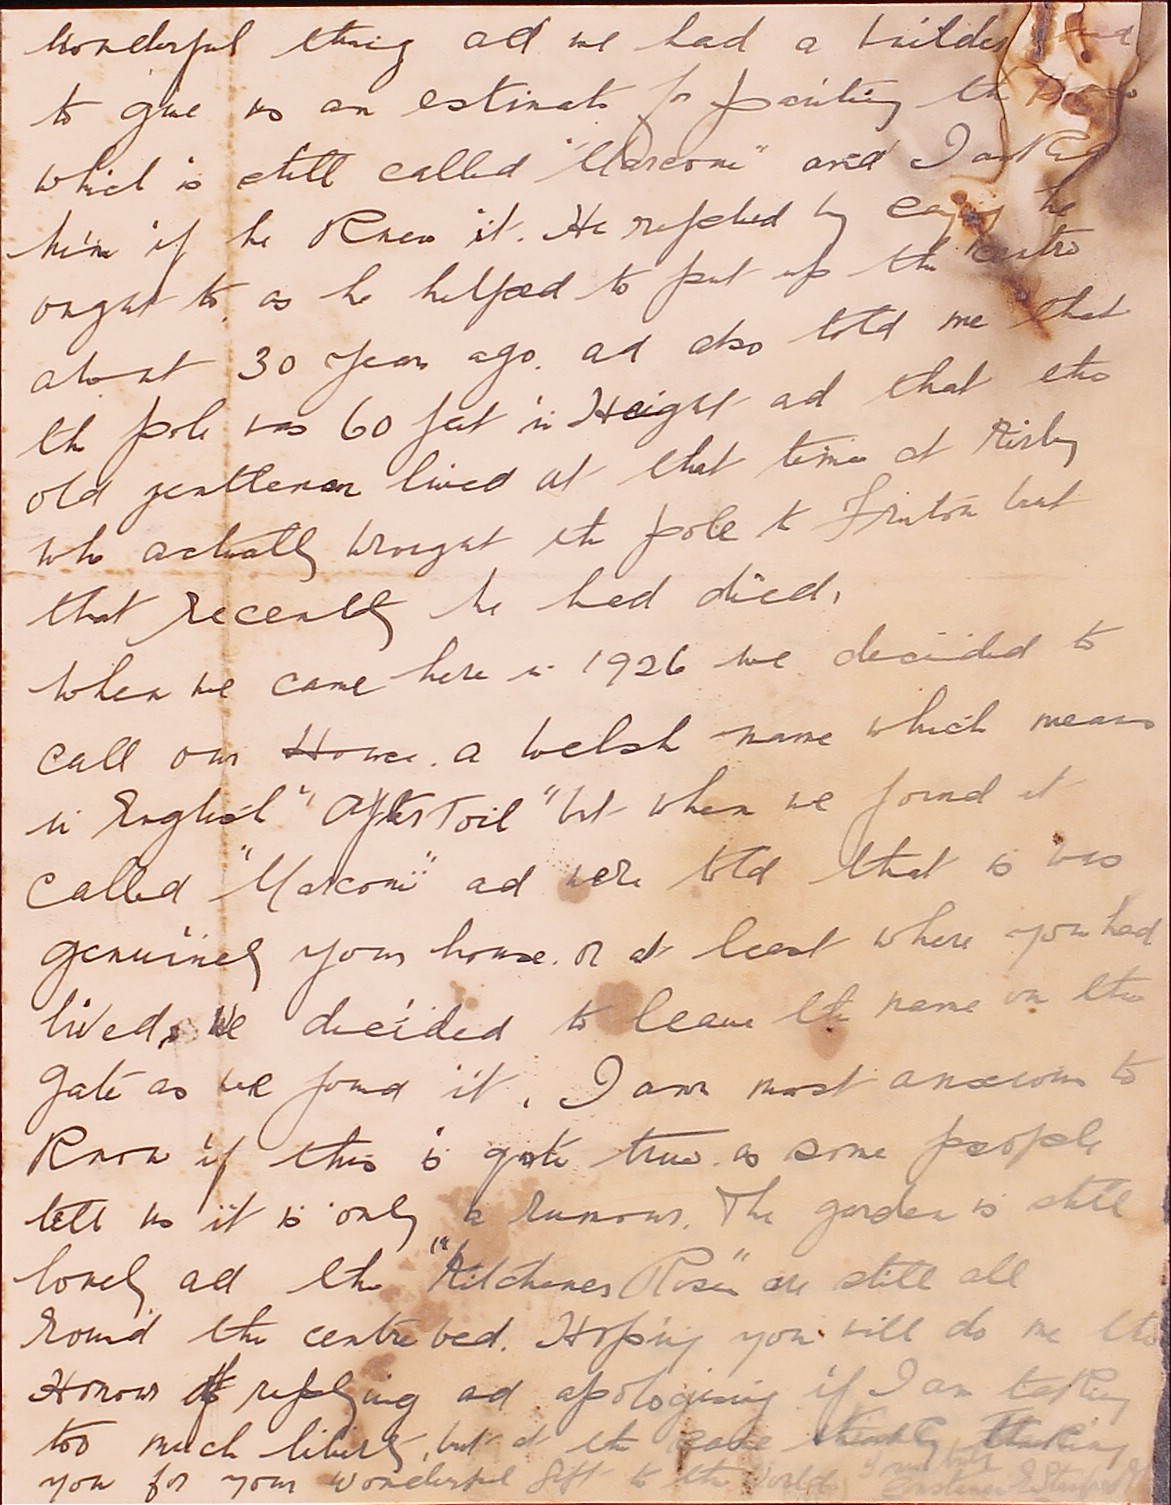 wonderful thing ad we had a builder
to give us an estimate for painting the
which is still called "Marconi" and I asked
him if he knew it. He replied by saying he
ought to, as he helped to put up the centre
about 30 years ago. ad also told me that
the pole was 60 feet in Height ad that the
old gentleman lived at that time at Kirby
who actually brought the pole to Frinton but
that recently he had died.
When we came here in 1926 we decided to
call our House. a Welsh name which means
in English "After Toil" but when we found it
called "Marconi" ad were told that is was
genuinely your house. or at least where you had
lived, We decided to leave the name on the
gate as we found it. I am most anxious to
know if this is quite true. as some people
tell us it is only a rumour. The garden is still
lovely ad the "Kitcheners Roses" are still all
round the centre bed. Hoping you will do me the
Honour of replying ad apologising if I am taking
too much liberty, but at the same thanking
you for your wonderful Gift to the World